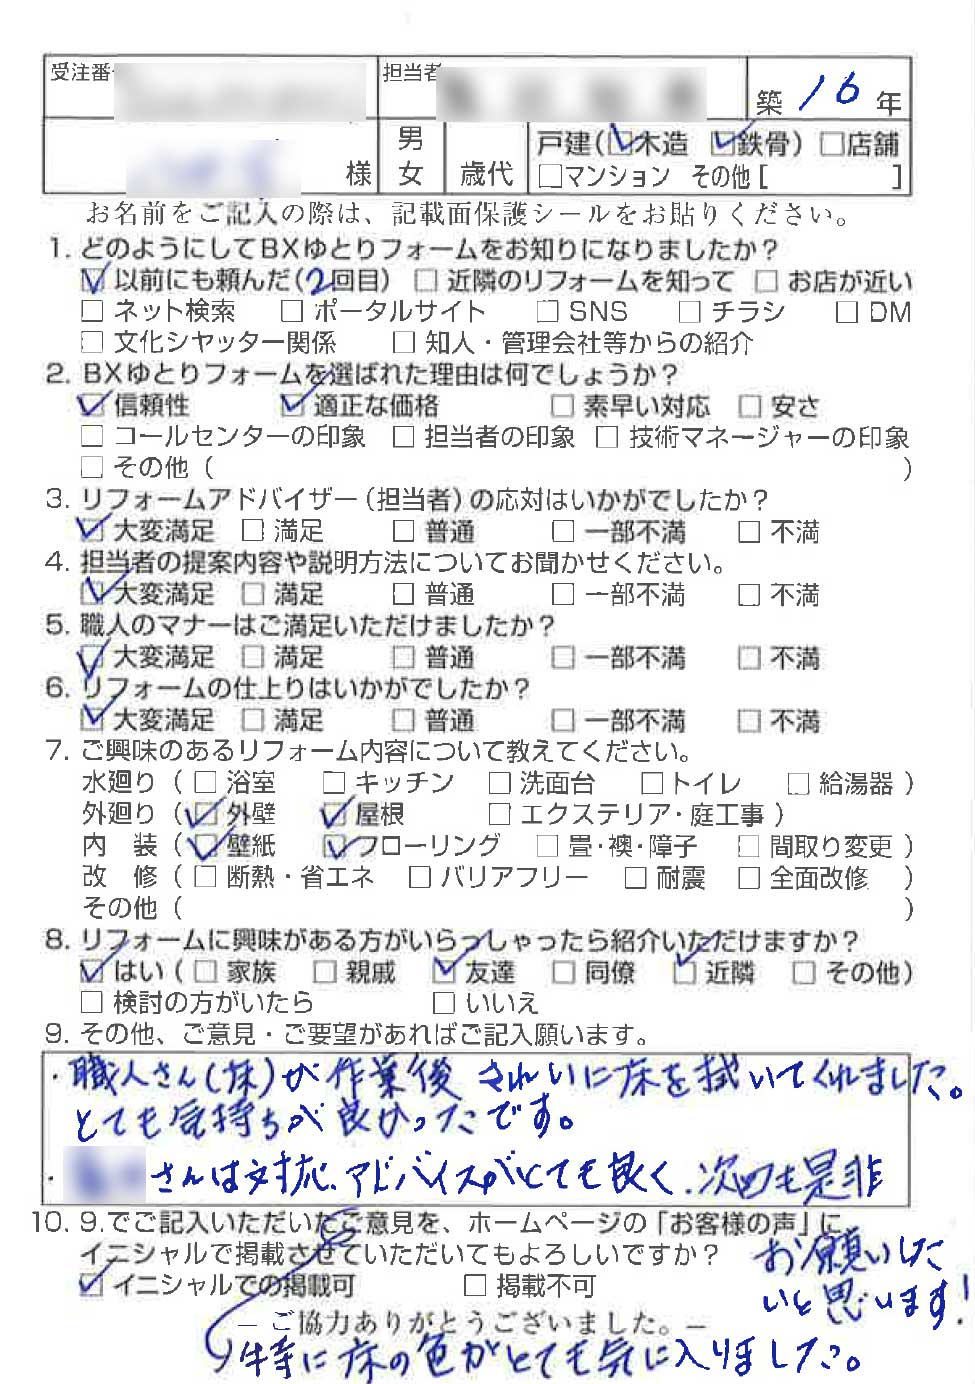 受注番号
担当者
築 16 年
様
男
女
歳代
戸建(☑木造 ☑鉄骨) □店舗
□マンション その他[ ]
お名前をご記入の際は、記載面保護シールをお貼りください。
1. どのようにしてBXゆとりフォームをお知りになりましたか？
☑以前にも頼んだ(2回目) □近隣のリフォームを知って □お店が近い
□ネット検索 □ポータルサイト □SNS □チラシ □DM
□文化シヤッター関係 □知人・管理会社等からの紹介
2. BXゆとりフォームを選ばれた理由は何でしょうか？
☑信頼性 ☑適正な価格 □素早い対応 □安さ
□コールセンターの印象 □担当者の印象 □技術マネージャーの印象
□その他 ( )
3. リフォームアドバイザー（担当者）の応対はいかがでしたか？
☑大変満足 □満足 □普通 □一部不満 □不満
4. 担当者の提案内容や説明方法についてお聞かせください。
☑大変満足 □満足 □普通 □一部不満 □不満
5. 職人のマナーはご満足いただけましたか？
☑大変満足 □満足 □普通 □一部不満 □不満
6. リフォームの仕上りはいかがでしたか？
☑大変満足 □満足 □普通 □一部不満 □不満
7. ご興味のあるリフォーム内容について教えてください。
水廻り ( □浴室 □キッチン □洗面台 □トイレ □給湯器 )
外廻り ( ☑外壁 ☑屋根 □エクステリア・庭工事 )
内 装 ( ☑壁紙 ☑フローリング □畳・襖・障子 □間取り変更 )
改 修 ( □断熱・省エネ □バリアフリー □耐震 □全面改修 )
その他 ( )
8. リフォームに興味がある方がいらっしゃったら紹介いただけますか？
☑はい ( □家族 □親戚 ☑友達 □同僚 ☑近隣 □その他)
□検討の方がいたら □いいえ
9. その他、ご意見・ご要望があればご記入願います。
・職人さん(床)が作業後 きれいに床を拭いてくれました。
とても気持ちが良かったです。
・さんは対応、アドバイスがとても良く、次回も是非
お願いした
いと思います！
10. 9.でご記入いただいたご意見を、ホームページの「お客様の声」に
イニシャルで掲載させていただいてもよろしいですか？
☑イニシャルでの掲載可 □掲載不可
－ご協力ありがとうございました。－
特に床の色がとても気に入りました。